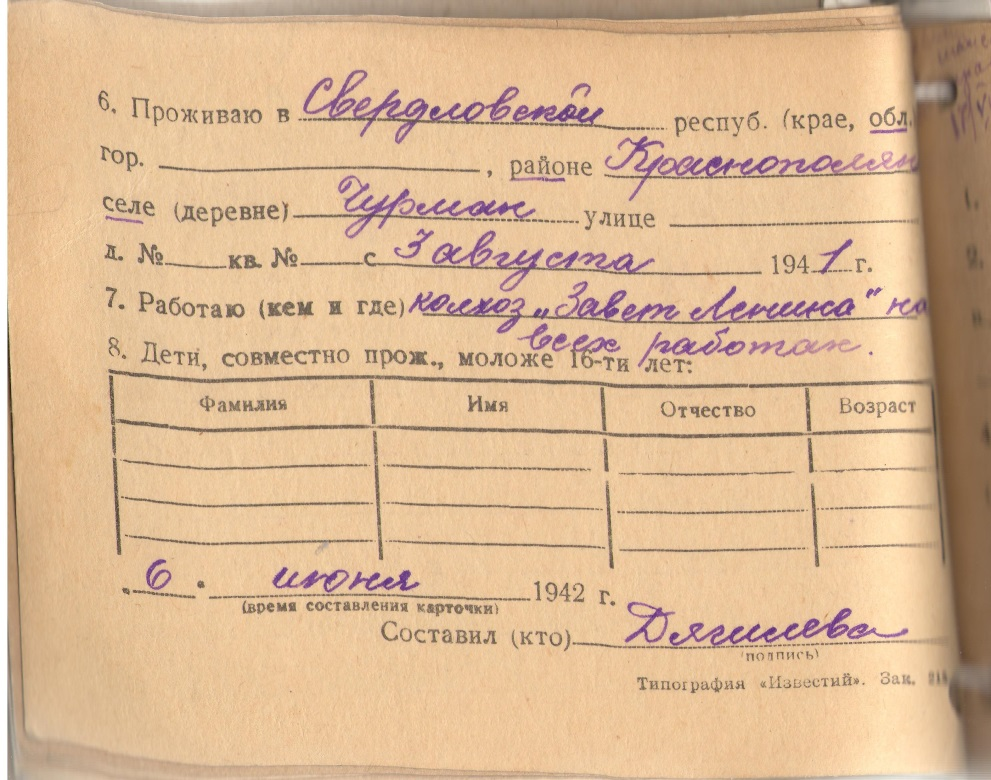 6. Проживаю в Свердловской респуб. (крае, обл.
гор. , районе Краснополян
селе (деревне) Чурман улице
д. № кв. № с 3 августа 1941 г.
7. Работаю (кем и где) колхоз „Завет Ленина" на
всех работах.
8. Дети, совместно прож., моложе 16-ти лет:
Фамилия Имя Отчество Возраст
„ 6 " июня 1942 г.
(время составления карточки)
Составил (кто) Дягилева
(подпись)
Типография «Известий». Зак.